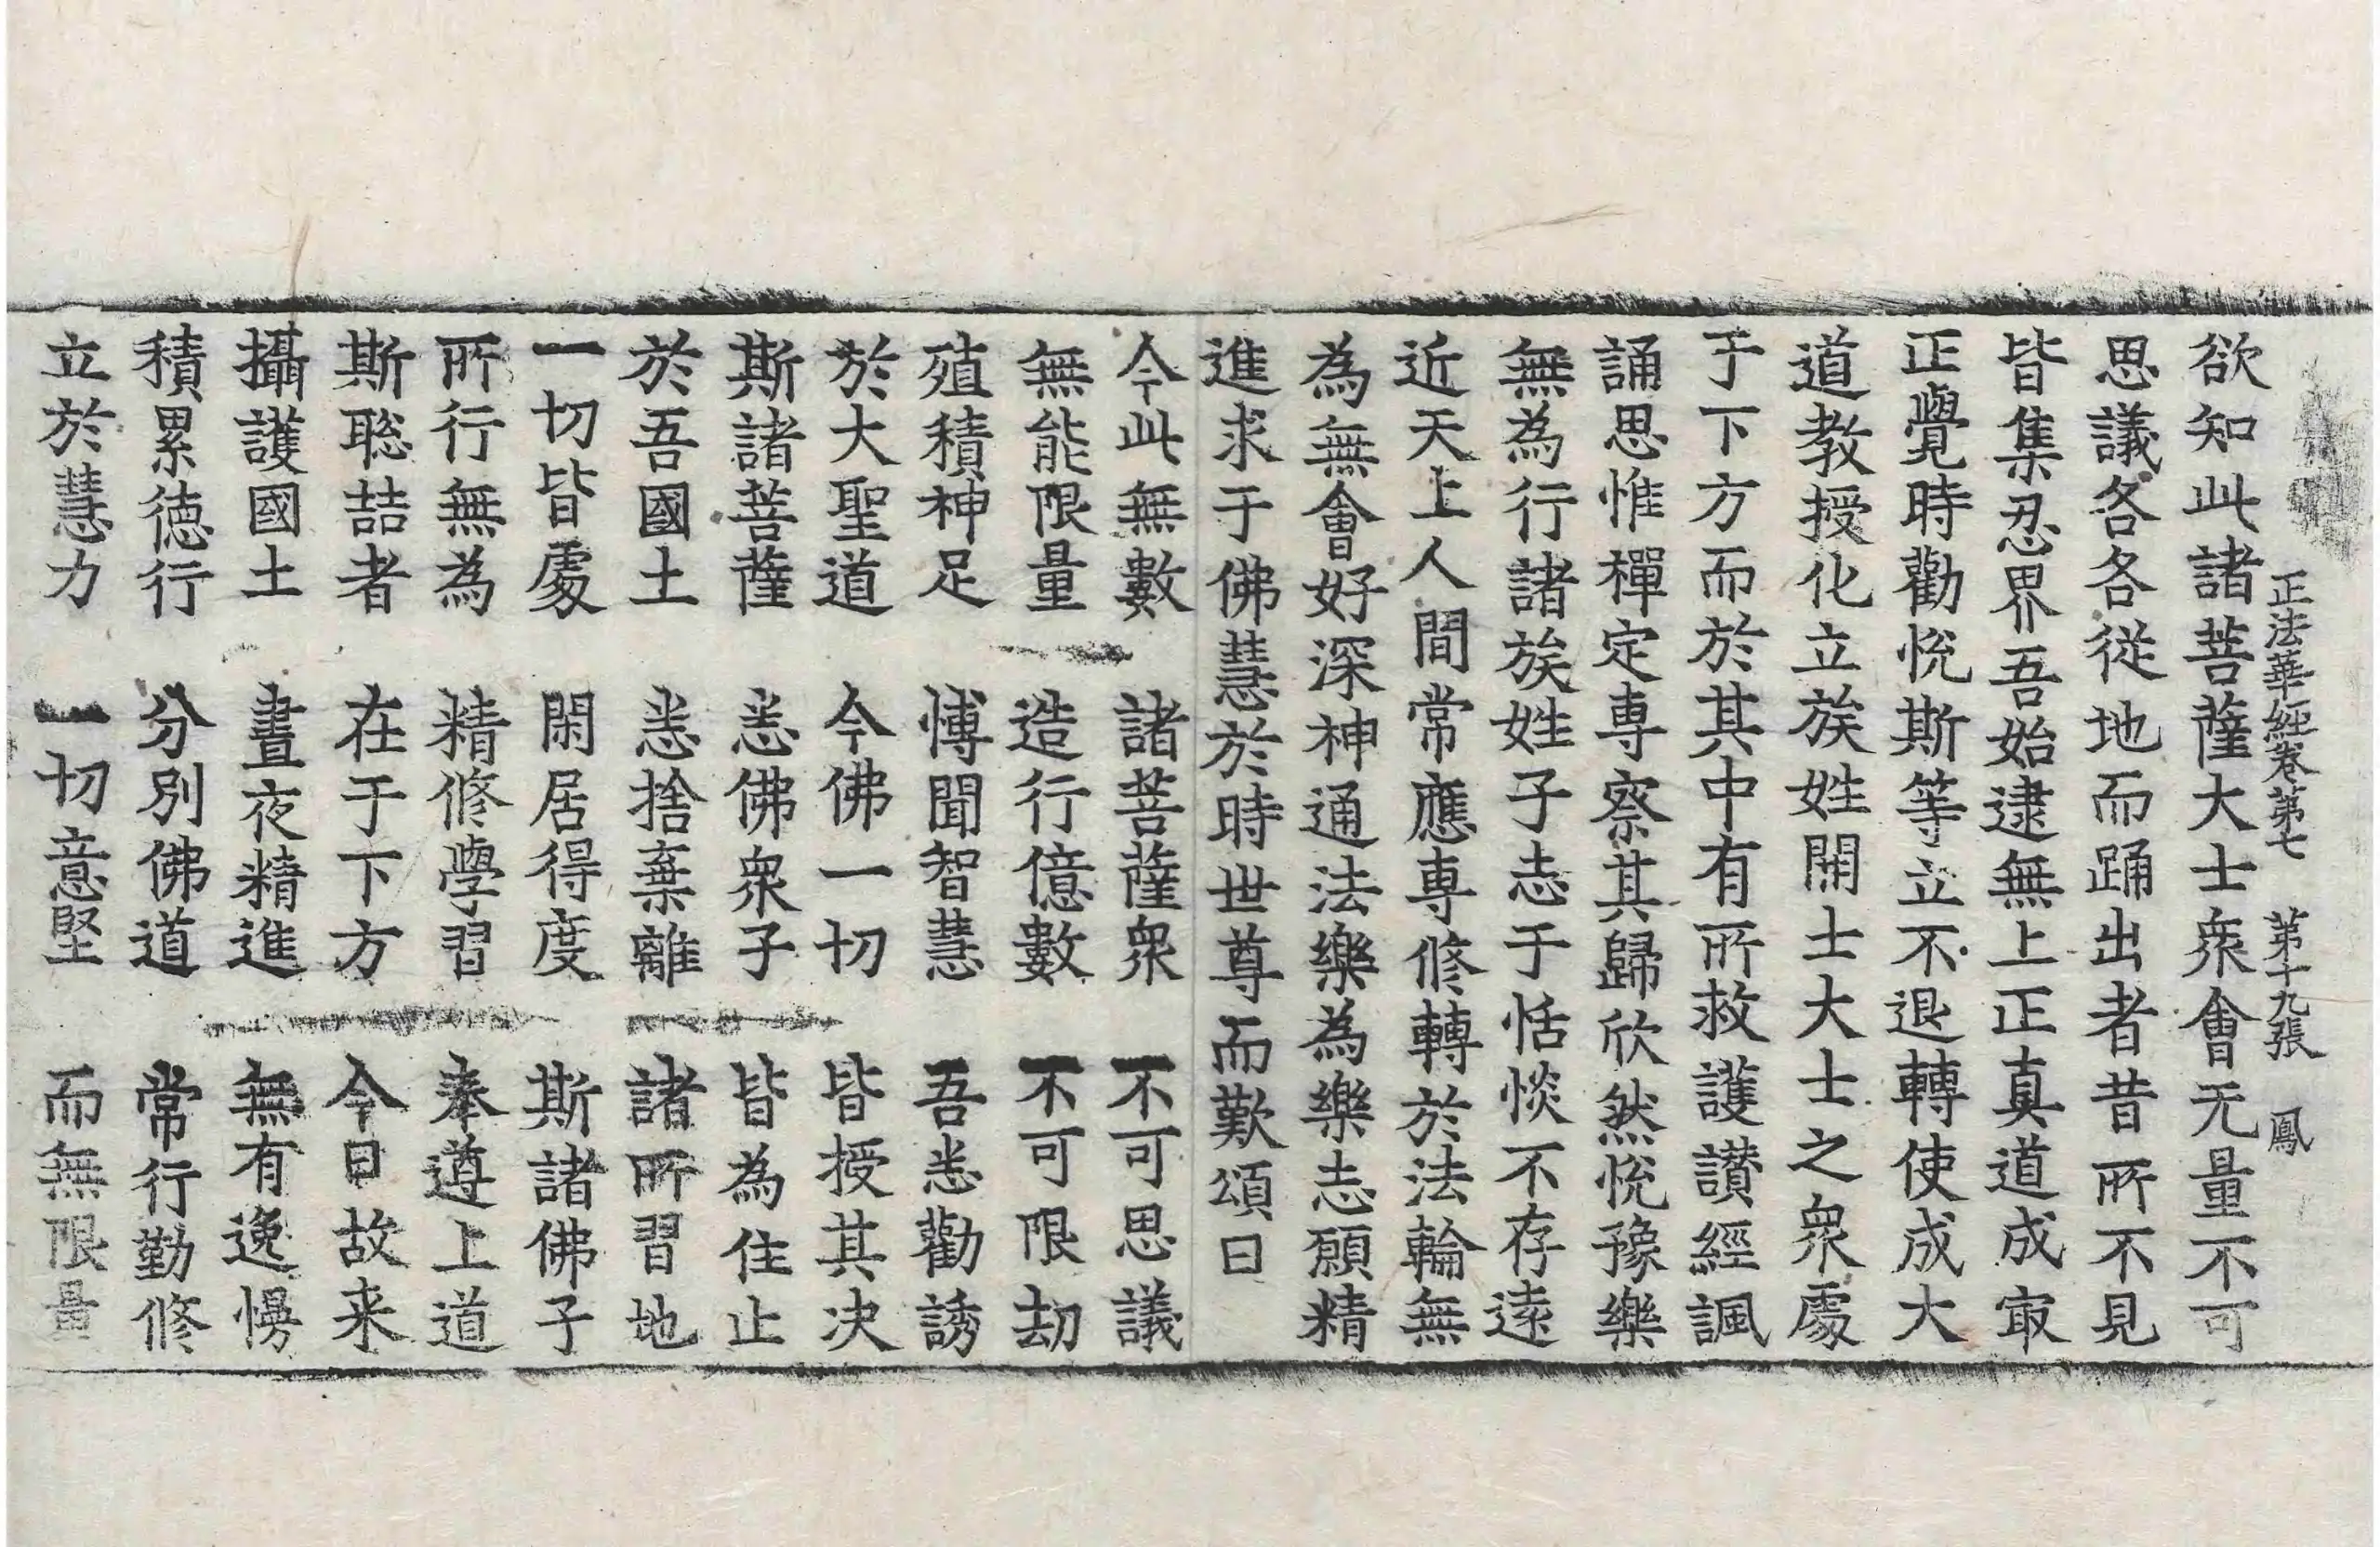 正法華經卷第七　第十九張　鳳
欲知此諸菩薩大士衆會无量不可
思議各各從地而踊出者昔所不見
皆集忍界吾始逮無上正真道成㝡
正覺時勸恱斯等立不退轉使成大
道教授化立族姓開士大士之衆處
于下方而於其中有所救護讃經諷
誦思惟禪定專察其歸欣然恱豫樂
無為行諸族姓子志于恬惔不存遠
近天上人間常應專修轉於法輪無
為無會好深神通法樂為樂志願精
進求于佛慧於時世尊而歎頌曰
今此無數　諸菩薩衆　不可思議
無能限量　造行億數　不可限劫
殖積神足　愽聞智慧　吾悉勸誘
於大聖道　今佛一切　皆授其决
斯諸菩薩　悉佛衆子　皆為住止
於吾國土　悉捨棄離　諸所習地
一切皆處　閑居得度　斯諸佛子
所行無為　精修學習　奉遵上道
斯聡喆者　在于下方　今日故来
攝護國土　晝夜精進　無有逸慢
積累德行　分別佛道　常行勤修
立於慧力　一切意堅　而無限量